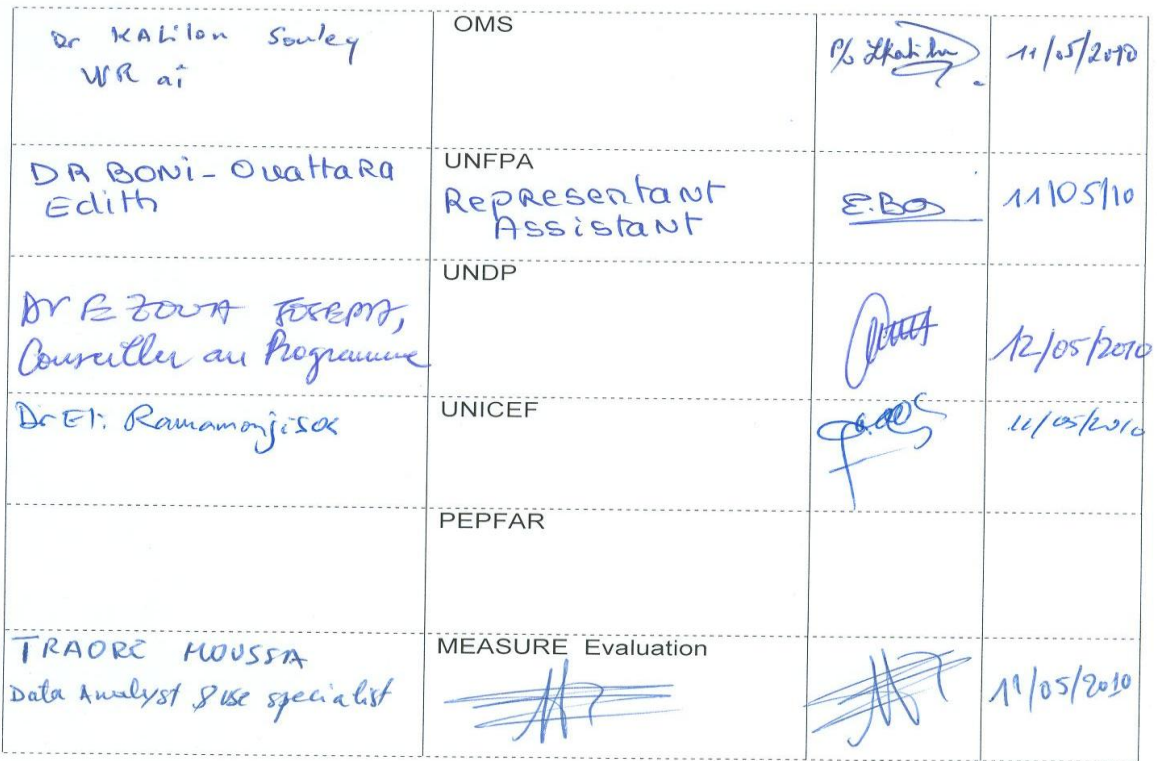 Dr KALilou Souley
WR ai
OMS
P/o
11/05/2010
DR BONi - OuattaRa
Edith
UNFPA
RepResentant
Assistant
E.Bo
11/05/10
UNDP
Dr
JOSEPH,
Conseiller au Programme
12/05/2010
UNICEF
Dr Eli Ramamonjisoa
11/05/2010
PEPFAR
TRAORE MOUSSA
Data Analyst & use specialist
MEASURE Evaluation
11/05/2010